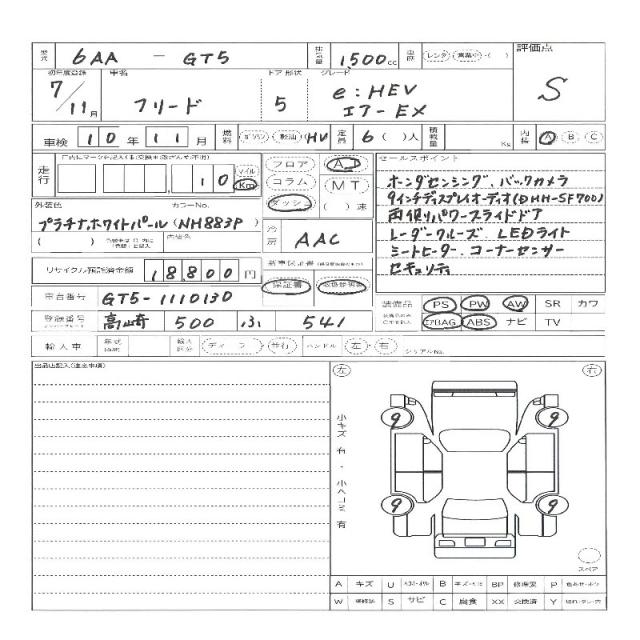 型式 6AA - GT5 排気量 1500cc 車歴 レンタ 自家用 ( ) 評価点
S
初年度登録 車名 ドア 形状 グレード
7/11月 フリード 5 e:HEV
エアーEX
車検 10年11月 燃料 ガソリン 軽油 HV 定員 6( )人 積載量 Kg 内装 A B C
走行 10 マイル Km フロア AT
コラム MT
ダッシュ ( )速
セールスポイント
ホンダセンシング、バックカメラ
9インチディスプレイオーディオ(DMH-SF700)
両側パワースライドドア
レーダークルーズ、LEDライト
シートヒーター、コーナーセンサー
セキュリティ
外装色 カラーNo.
プラチナホワイトパール(NH883P)
( ) 内装色 冷房 AAC
リサイクル預託済金額 18800円 新車保証書
保証書 取扱説明書
車台番号 GT5-1110130
登録番号 高崎 500 ふ 541
装備品 PS PW AW SR カワ
エアBAG ABS ナビ TV
輸入車 年式 輸入区分 ディーラー 並行 ハンドル 左・右 シリアルNo.
出品店記入(注意事項)
左 右
小キズ有・小ヘコミ有
9 9
9 9
スペア
A キズ U B BP 修理要 P
W S サビ C 腐食 XX 交換済 Y